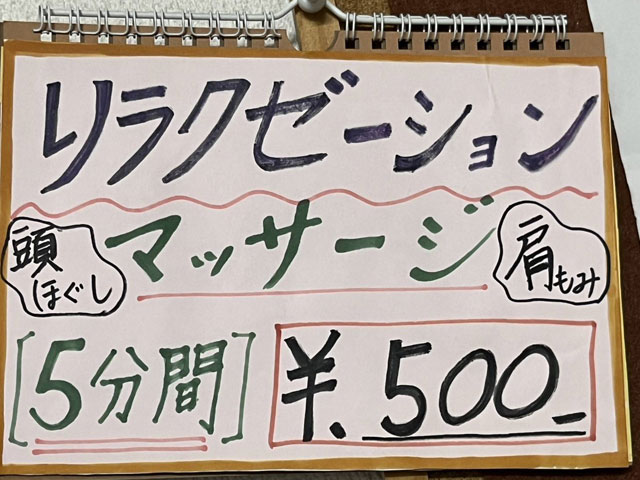 リラクゼーション
マッサージ
頭
ほぐし
肩
もみ
[5分間]
¥.500_